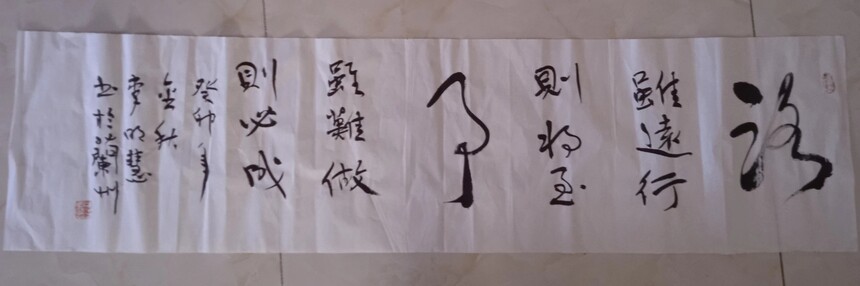 路
雖遠行
則將至
事
雖難做
則必成
癸卯年
金秋
李明慧
书於蘭州